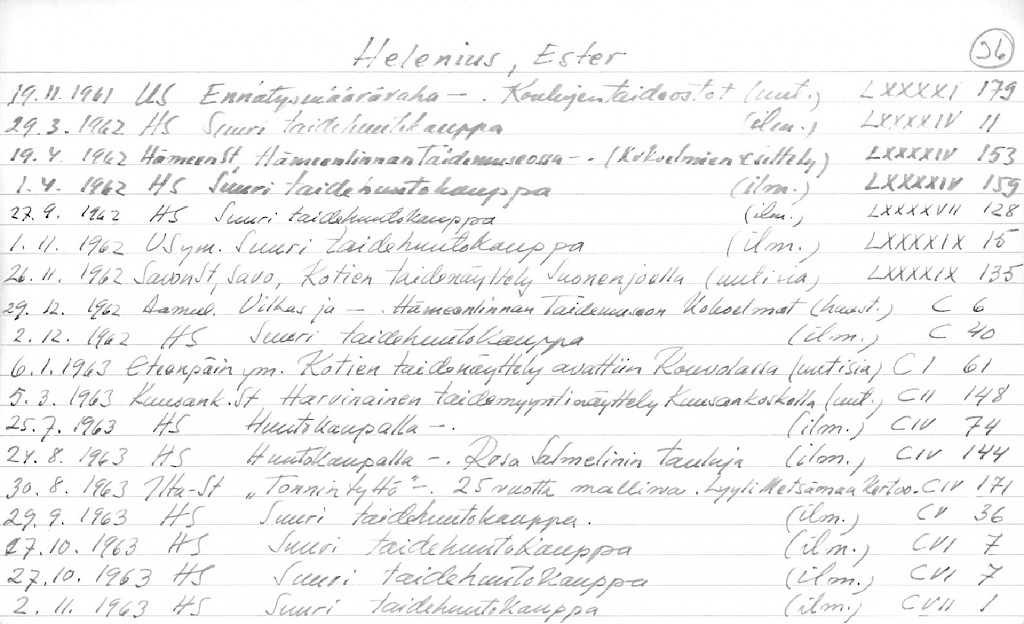 Helenius, Ester 36
19.11.1961 US Ennätysmääräraha - . Koulujen taideostot (uut.) LXXXXI 179
29.3.1962 HS Suuri taidehuutokauppa (ilm.) LXXXXIV 11
19.4.1962 HämeenSt, Hämeenlinnan Taidemuseossa - . (Kokoelmien esittely) LXXXXIV 153
1.4.1962 HS Suuri taidehuutokauppa (ilm.) LXXXXIV 159
27.9.1962 HS Suuri taidehuutokauppa (ilm.) LXXXXVII 128
1.11.1962 US ym. Suuri taidehuutokauppa (ilm.) LXXXXIX 15
26.11.1962 SavonSt, Savo, Kotien taidenäyttely Suonenjoella (uutisia) LXXXXIX 135
29.12.1962 Aamul. Vilkas ja - . Hämeenlinnan Taidemuseon Kokoelmat (huost.) C 6
2.12.1962 HS Suuri taidehuutokauppa (ilm.) C 40
6.1.1963 Eteenpäin ym. Kotien taidenäyttely avattiin Kouvolassa (uutisia) CI 61
5.3.1963 Kuusank.St Harvinainen taidemyyntinäyttely Kuusankoskella (uut.) CII 148
25.7.1963 HS Huutokaupalla - . (ilm.) CIV 74
24.8.1963 HS Huutokaupalla - . Rosa Salmelinin tauluja (ilm.) CIV 144
30.8.1963 Ilta-St "Tonnin tyttö" - . 25 vuotta mallina. Lyyli Metsämaa kertoo. CIV 171
29.9.1963 HS Suuri taidehuutokauppa. (ilm.) CV 36
27.10.1963 HS Suuri taidehuutokauppa (ilm.) CVI 7
27.10.1963 HS Suuri taidehuutokauppa (ilm.) CVI 7
2.11.1963 HS Suuri taidehuutokauppa (ilm.) CVII 1